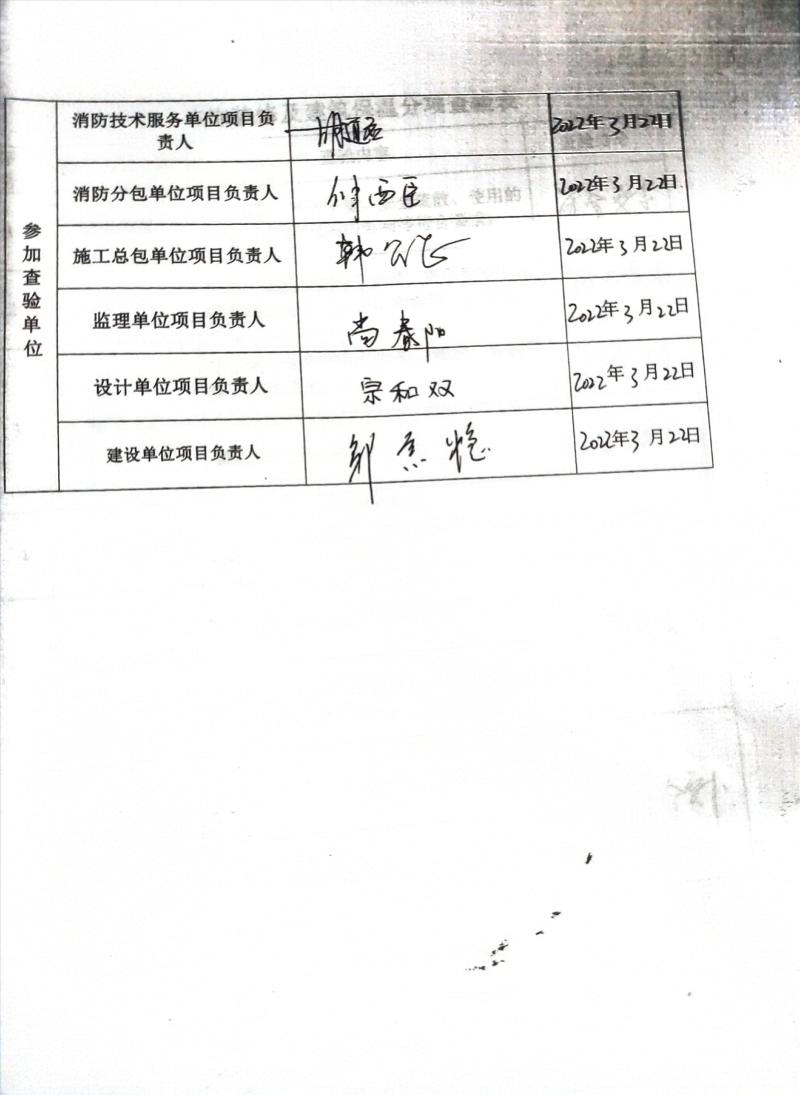 参加查验单位
消防技术服务单位项目负
责人
2022年3月22日
消防分包单位项目负责人
2022年3月22日
施工总包单位项目负责人
2022年3月22日
监理单位项目负责人
尚春阳
2022年3月22日
设计单位项目负责人
宗和双
2022年3月22日
建设单位项目负责人
2022年3月22日